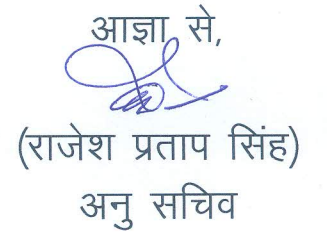 आज्ञा से,
(राजेश प्रताप सिंह)
अनु सचिव